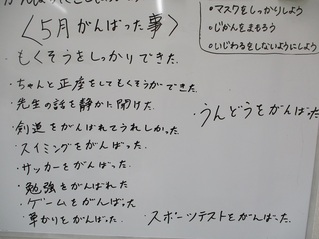 ・マスクをしっかりしよう
・じかんをまもろう
・いじわるをしないようにしよう
〈5月がんばった事〉
・もくそうをしっかりできた。
・ちゃんと正座をしてもくそうができた
・先生の話を静かに聞けた。
・剣道をがんばれてうれしかった。
・うんどうをがんばった
・スイミングをがんばった。
・サッカーをがんばった。
・勉強をがんばれた
・ゲームをがんばった。
・草かりをがんばった。
・スポーツテストをがんばった。